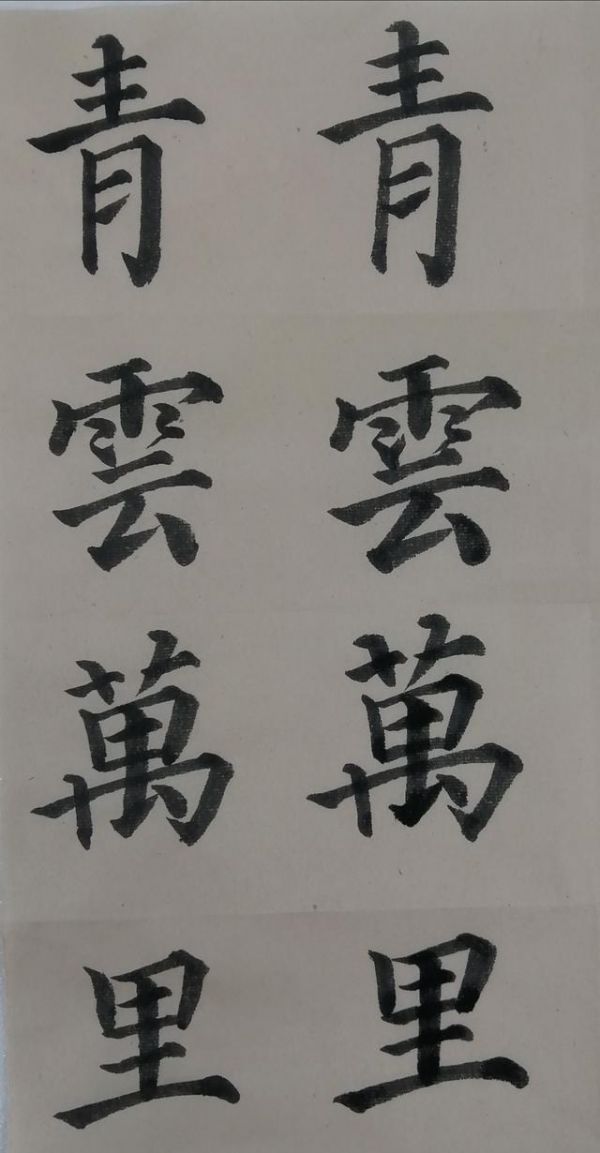 青雲萬里
青雲萬里